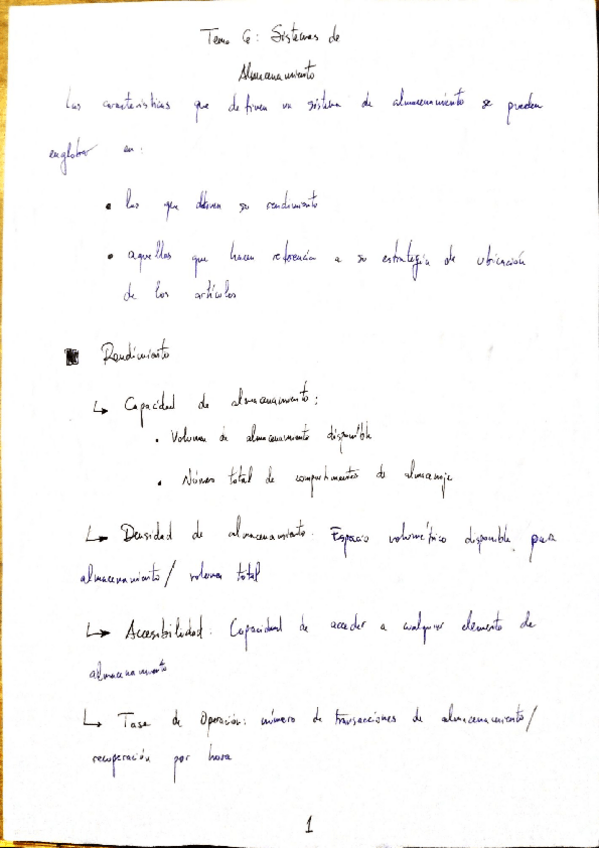 Tema 6: Sistemas de
Almacenamiento
Las características que definen un sistema de almacenamiento se pueden
englobar en:
• las que definen su rendimiento
• aquellas que hacen referencia a su estrategia de ubicación
de los artículos
Rendimiento
↳ Capacidad de almacenamiento:
• Volumen de almacenamiento disponible
• Número total de compartimentos de almacenaje
↳ Densidad de almacenamiento: Espacio volumétrico disponible para
almacenamiento/ volumen total
↳ Accesibilidad: Capacidad de acceder a cualquier elemento de
almacenamiento
↳ Tasa de Operación: número de transacciones de almacenamiento/
recuperación por hora
1